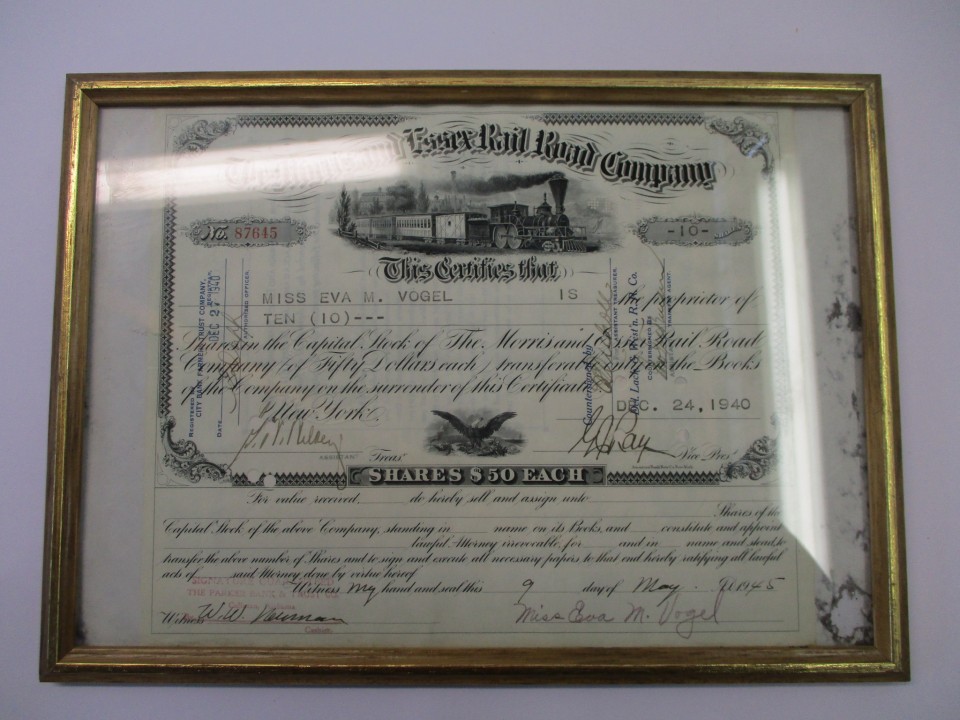 The Morris and Essex Rail Road Company
No. 87645
-10-
Shares
This Certifies that
MISS EVA M. VOGEL IS the proprietor of
TEN (10)---
Shares in the Capital Stock of The Morris and Essex Rail Road
Company (of Fifty Dollars each) transferable only on the Books
of the Company on the surrender of this Certificate
New York DEC. 24, 1940
REGISTERED
CITY BANK FARMERS TRUST COMPANY,
DEC 27 1940
DATE
AUTHORISED OFFICER.
Countersigned by
ASSISTANT TREASURER.
Del. Lack. & West'n. R.R. Co.
COUNTERSIGNED BY
TRANSFER AGENT
ASSISTANT Treasr.
Vice Prest.
SHARES $50 EACH
For value received do hereby sell and assign unto
Shares of the
Capital Stock of the above Company, standing in name on its Books, and constitute and appoint
lawful Attorney irrevocable, for and in name and stead, to
transfer the above number of Shares and to sign and execute all necessary papers to that end hereby ratifying all lawful
acts of said Attorney done by virtue hereof
SIGNATURE GUARANTEED
THE PARKER BANK & TRUST CO.
Witness my hand and seal this 9 day of May 1945
Witness W. W. Newman Miss Eva M. Vogel
Cashier